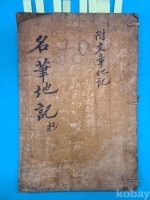 附文章地記
名筆地記 抄
kobay